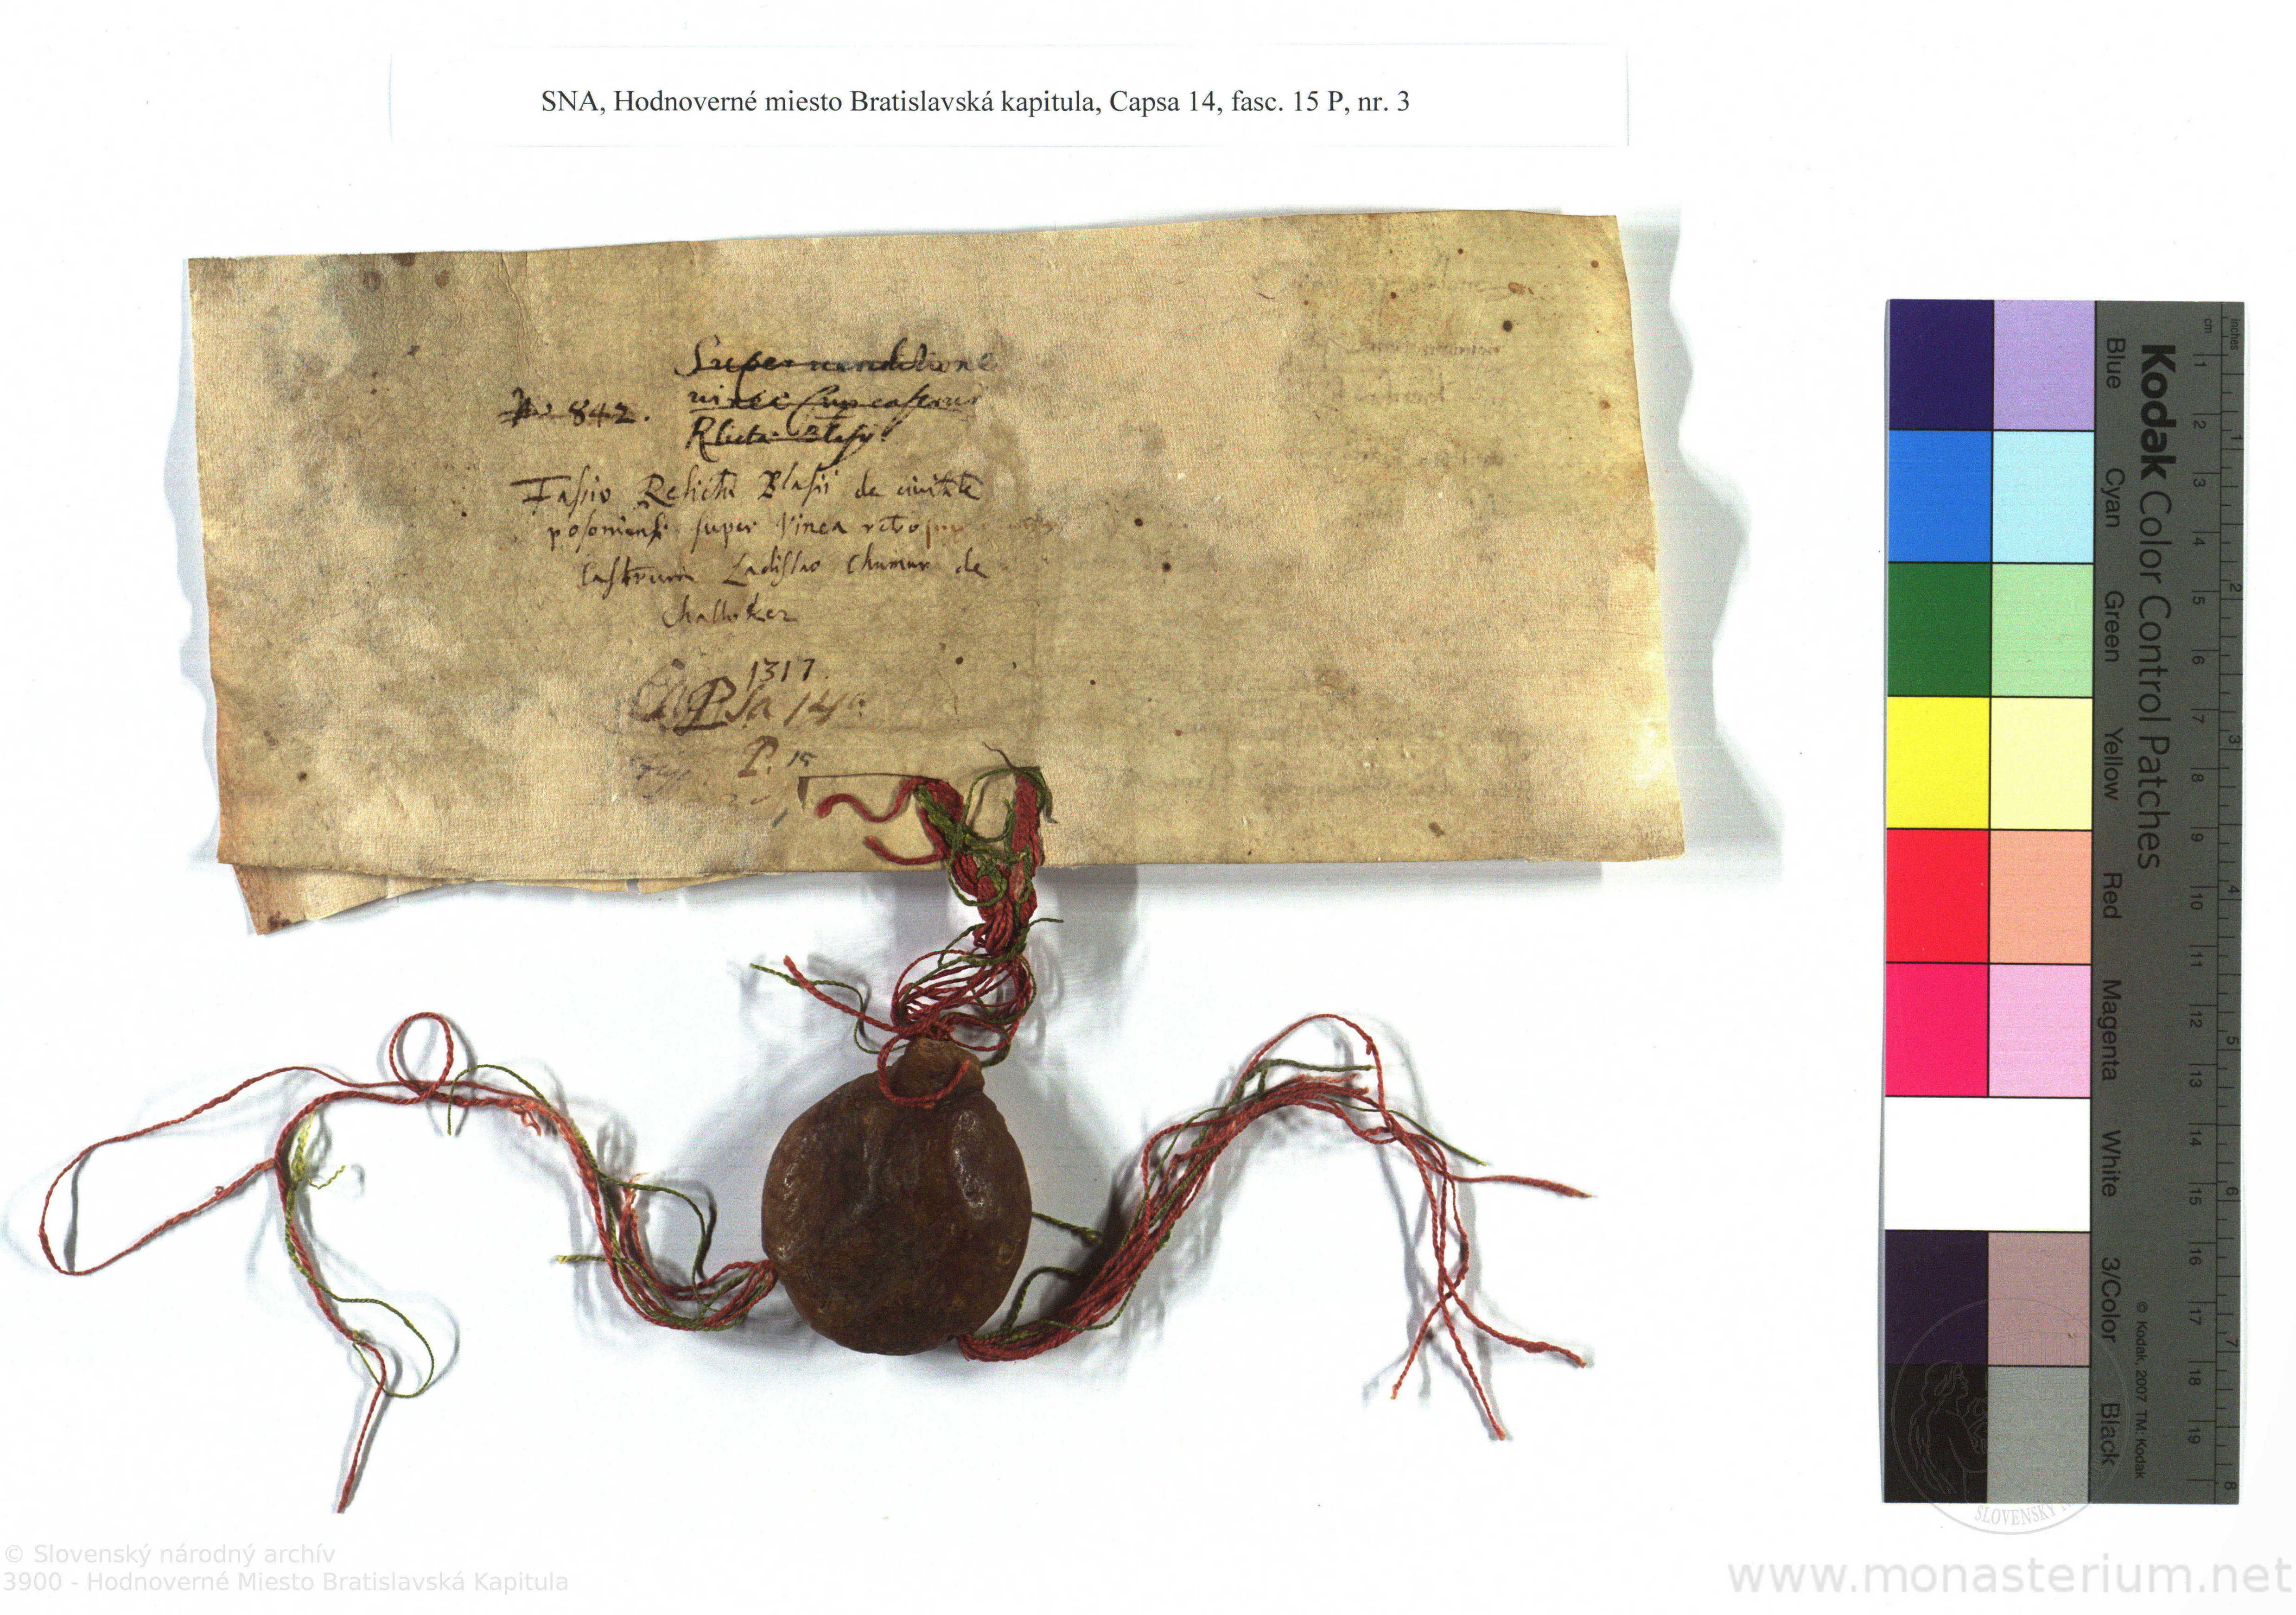 SNA, Hodnoverné miesto Bratislavská kapitula, Capsa 14, fasc. 15 P, nr. 3
Super venditione
No 842.
Relicta Blasÿ
Fassio Relicte Blasii de civitate
posoniensi super Vinea retro
Castrum Ladislao Chumur de
Challoker
1317.
Capsa 14a
P. 15
Kodak Color Control Patches
Blue Cyan Green Yellow Red Magenta White 3/Color Black
© Kodak, 2007 TM: Kodak
inches 1 2 3 4 5 6 7 8
cm 1 2 3 4 5 6 7 8 9 10 11 12 13 14 15 16 17 18 19
SLOVENSKÝ
© Slovenský národný archív
3900 - Hodnoverné Miesto Bratislavská Kapitula
www.monasterium.net